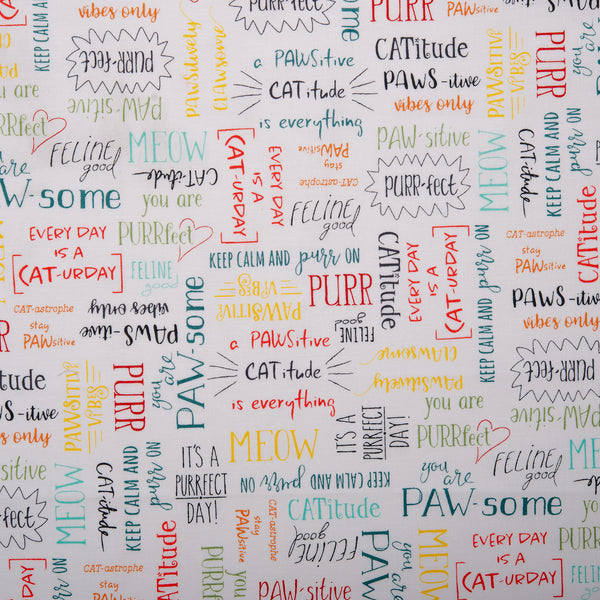 KEEP CALM AND
purr ON
PURR-fect
PAWSitively
CLAWsome
PAW-some
you are
CATitude
PAWS-itive
vibes only
stay
PAWsitive
PAWSITIVE
VIBES
PURR
you are
a PAWSitive
CATitude
is everything
PAW-sitive
PURRfect
FELINE
good
MEOW
CAT-itude
[CAT-URDAY]
IS A
EVERY DAY
stay
PAWsitive
CAT-astrophe
PAW-sitive
PURR-fect
MEOW
CAT-itude
KEEP CALM AND
purr ON
you are
PAW-some
you are
PURRfect
FELINE
good
EVERY DAY
IS A
[CAT-URDAY]
FELINE
good
KEEP CALM AND purr ON
CATitude
EVERY DAY
IS A
[CAT-URDAY]
KEEP CALM AND
purr ON
CAT-astrophe
stay
PAWsitive
CATitude
CAT-astrophe
stay
PAWsitive
PAWS-itive
vibes only
you are
PAW-some
PAWSITIVE
VIBES
PURR
FELINE
good
a PAWSitive
CATitude
is everything
CLAWsome
PAWSitively
PAWS-itive
vibes only
PURR-fect
CATitude
PAWS-itive
vibes only
PAWSITIVE
VIBES
PURR
MEOW
IT'S A
PURRFECT
DAY!
you are
PURRfect
PAW-sitive
FELINE
good
MEOW
PAW-sitive
PURR-fect
MEOW
CAT-itude
KEEP CALM AND
purr ON
IT'S A
PURRFECT
DAY!
KEEP CALM AND purr ON
you are
PAW-some
CAT-astrophe
stay
PAWsitive
CATitude
PAW-sitive
you
stay
PAWsitive
CAT-astrophe
CATitude
FELINE
good
PAW-sitive
PAW
you are
MEOW
EVERY DAY
IS A
[CAT-URDAY]
PURRfect
FELINE
good